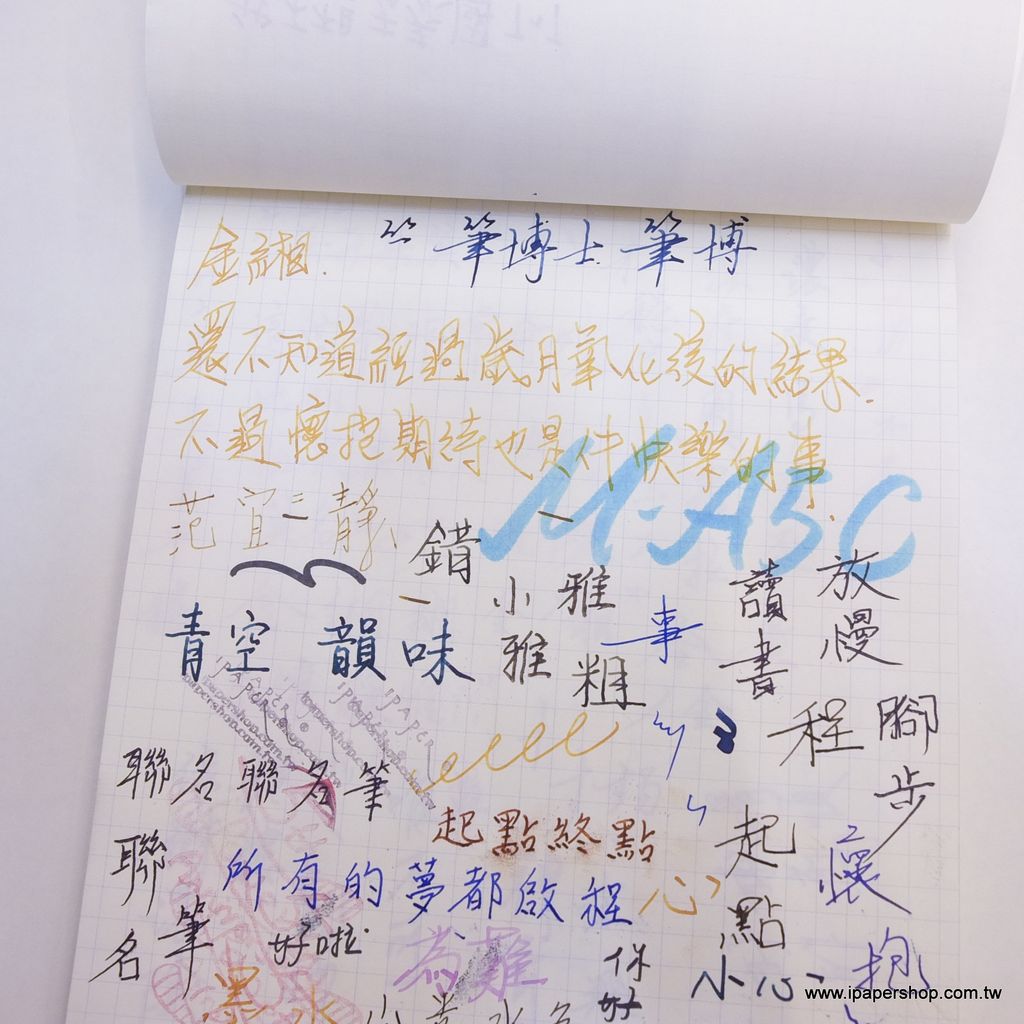 筆博士筆博
金緗.
還不知道經過歲月氧化後的結果.
不過懷抱期待也是件快樂的事.
M-A5C
范宜三靜
錯
小雅
雅
粗
事
讀書
放慢
腳步
程
青空 韻味
聯名聯名筆
聯名筆
起點終點
起點
所有的夢都啟程
心
懷抱
好啦
為難
你好
小心
墨水
www.ipapershop.com.tw